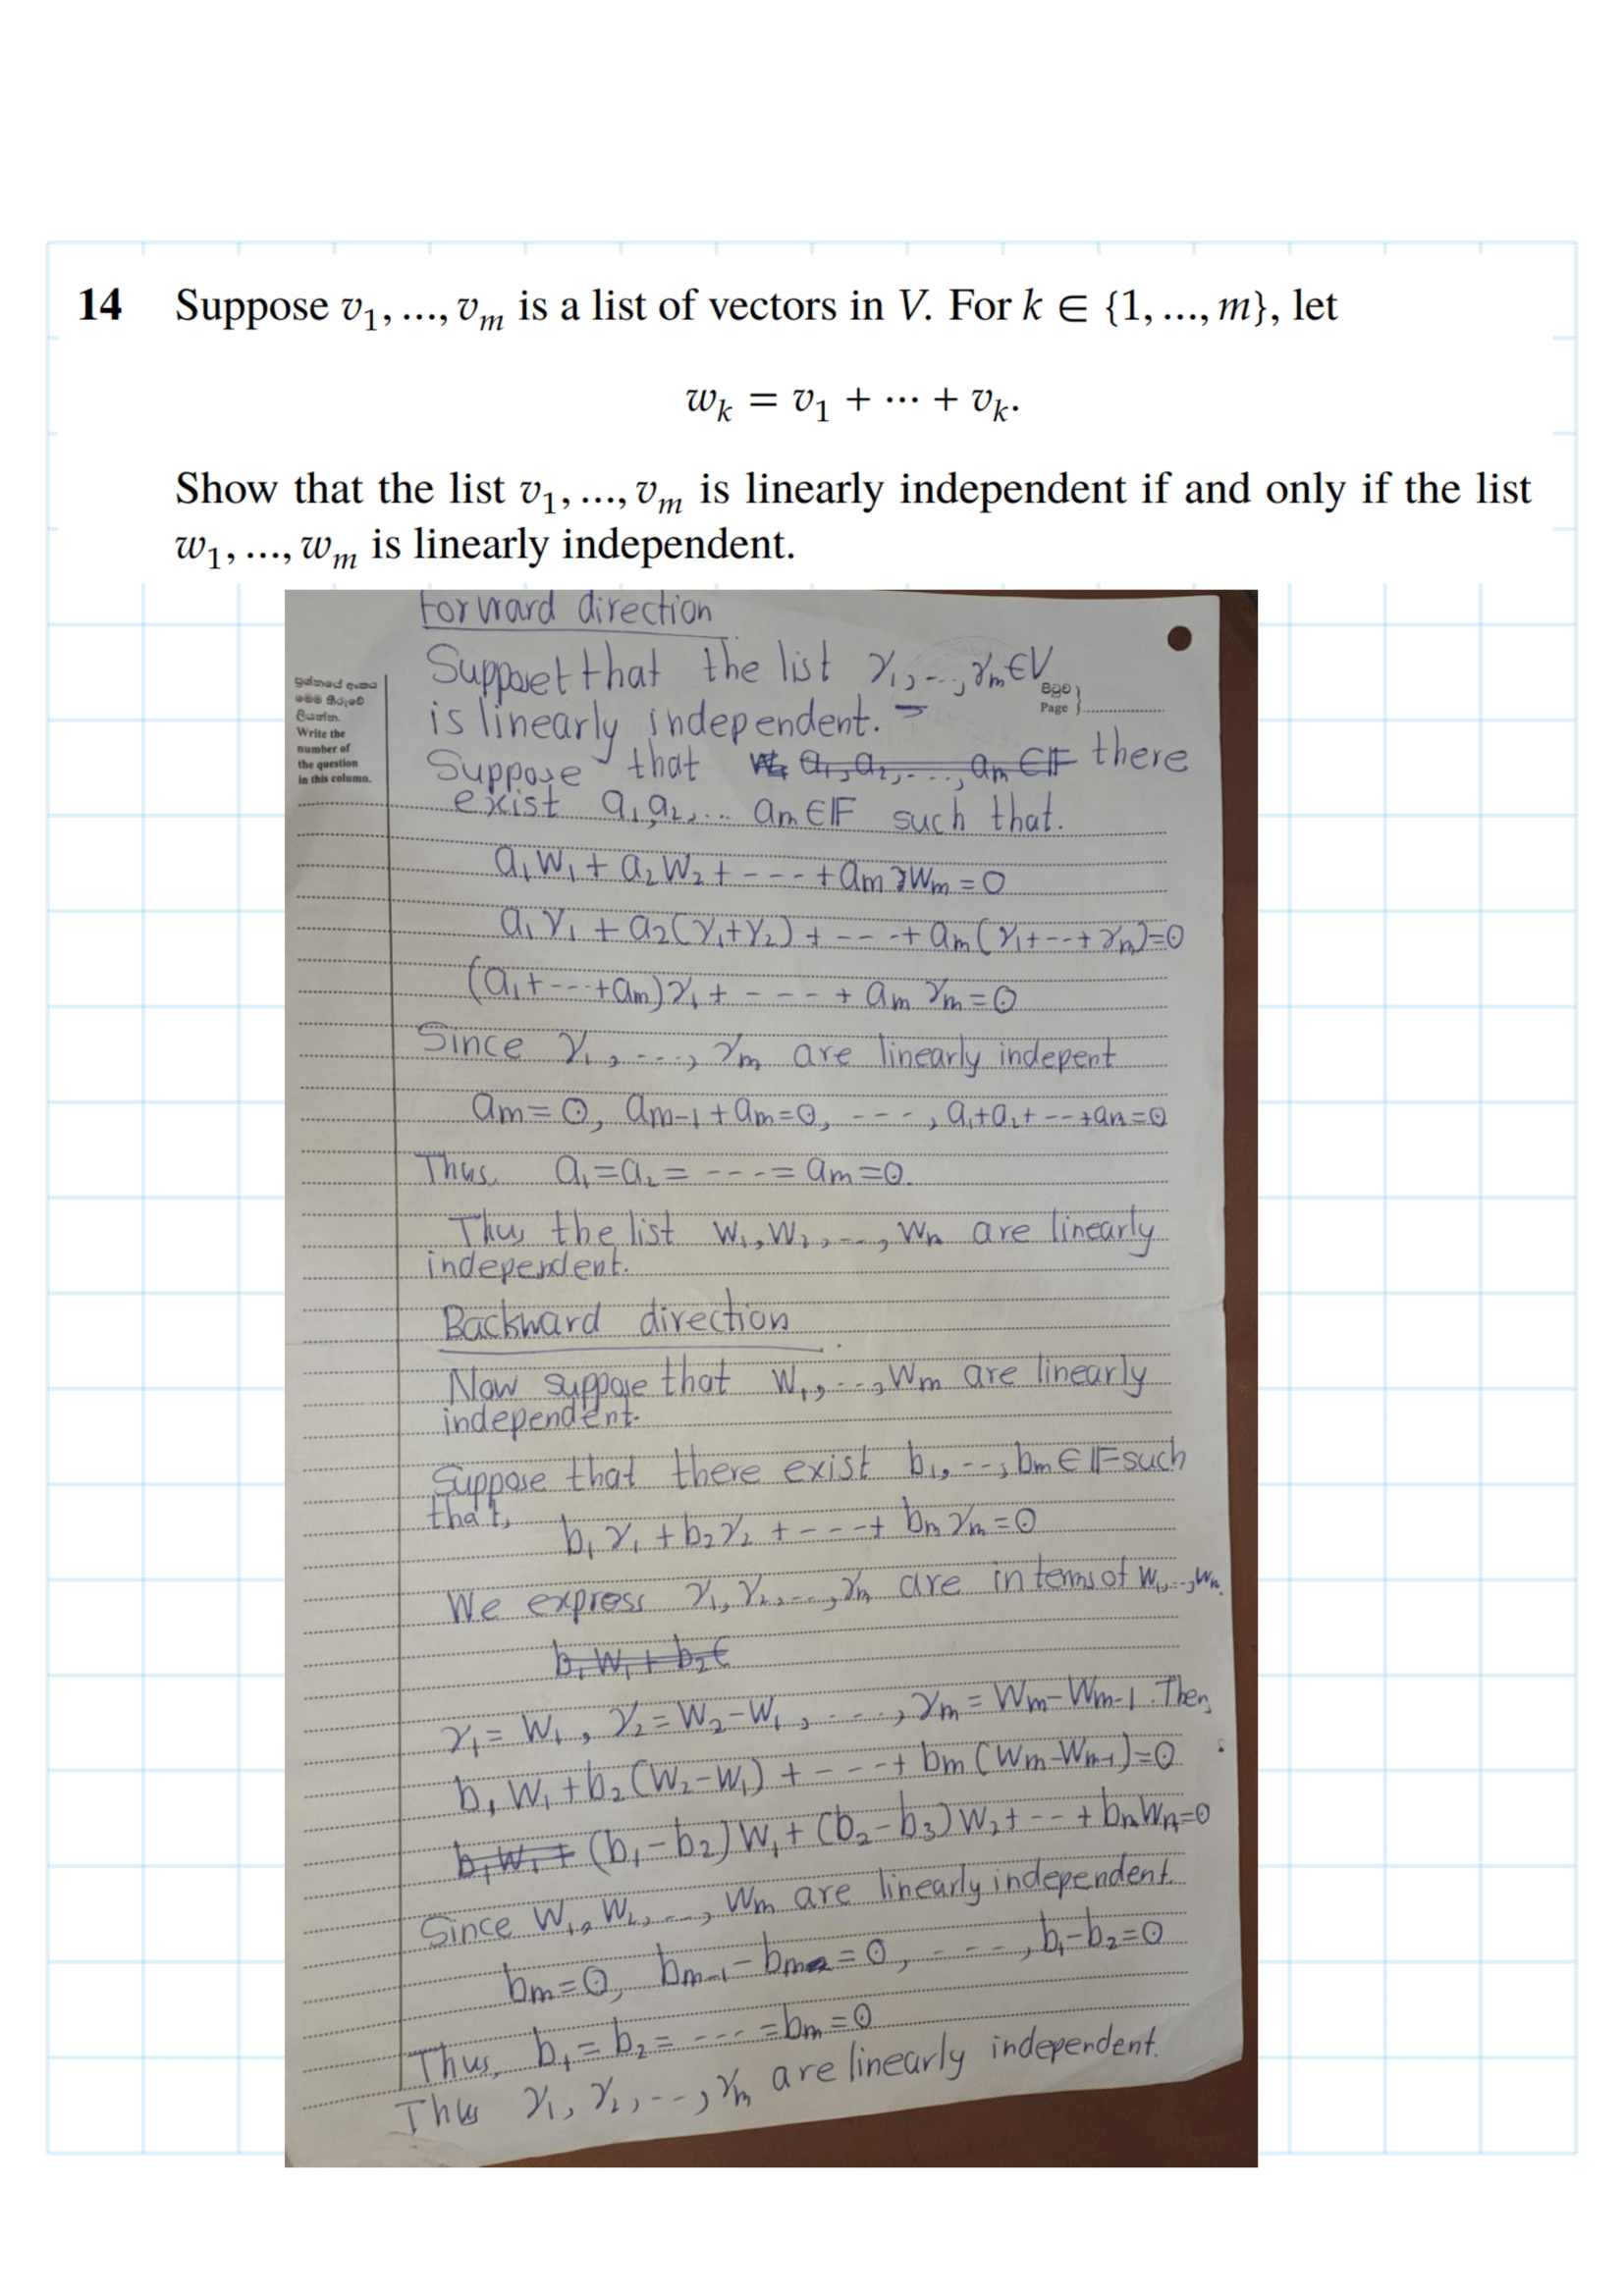 14 Suppose v₁, ..., vₘ is a list of vectors in V. For k ∈ {1, ..., m}, let
wₖ = v₁ + ⋯ + vₖ.
Show that the list v₁, ..., vₘ is linearly independent if and only if the list
w₁, ..., wₘ is linearly independent.
Forward direction
Suppose that the list γ₁, ..., γₘ ∈ V
is linearly independent.
ප්‍රශ්නයේ අංකය
මෙම තීරුවේ
ලියන්න.
Write the
number of
the question
in this column.
පිටුව
Page
Suppose that a₁, a₂, ..., aₘ ∈ 𝔽 there
exist a₁, a₂, ... aₘ ∈ 𝔽 such that.
a₁w₁ + a₂w₂ + ---- + aₘ wₘ = 0
a₁γ₁ + a₂(γ₁+γ₂) + --- + aₘ(γ₁+--+γₘ)=0
(a₁+---+aₘ)γ₁ + ---- + aₘ γₘ = 0
Since γ₁, ...., γₘ are linearly indepent
aₘ = 0, aₘ₋₁ + aₘ = 0, ---, a₁+a₂+--+aₙ=0
Thus, a₁=a₂= ----= aₘ=0.
Thus the list w₁, w₂, ..., wₙ are linearly
independent.
Backward direction
Now suppose that w₁, ..., wₘ are linearly
independent.
Suppose that there exist b₁, --, bₘ ∈ 𝔽 such
that,
b₁γ₁ + b₂γ₂ + ---+ bₘγₘ=0
We express γ₁, γ₂, ..., γₘ are in terms of w₁, .., wₙ.
b₁w₁ + b₂(
γ₁ = w₁, γ₂ = w₂-w₁, ----, γₘ = wₘ-wₘ₋₁. Then,
b₁w₁ + b₂(w₂-w₁) + ----+ bₘ(wₘ-wₘ₋₁)=0
b₁w₁ + (b₁-b₂)w₁ + (b₂-b₃)w₂+ -- + bₙwₙ=0
Since w₁, w₂, ..., wₘ are linearly independent.
bₘ=0, bₘ₋₁-bₘ = 0, ----, b₁-b₂=0
Thus, b₁ = b₂ = ---- =bₘ=0
Thus γ₁, γ₂, --, γₘ are linearly independent.